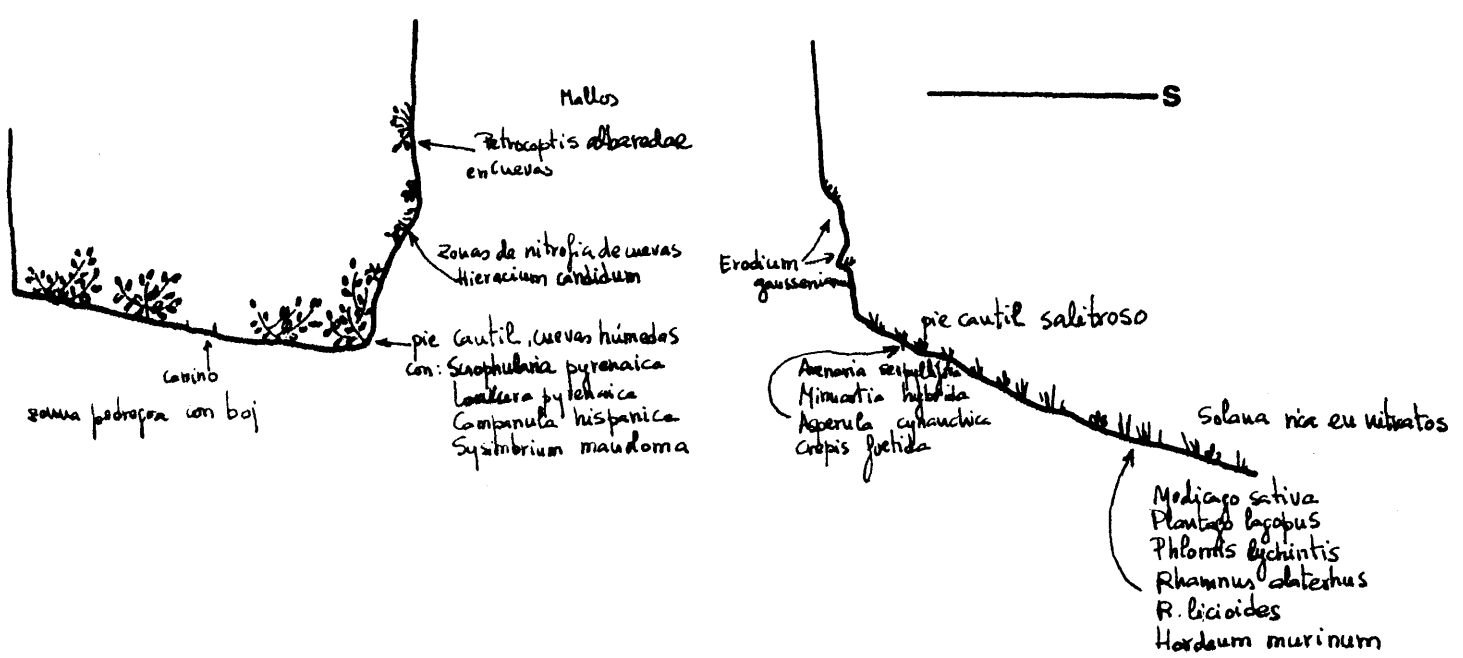 Mallos
Petrocoptis albaredae
en cuevas
zonas de nitrofia de cuevas
Hieracium candidum
pie cautil, cuevas húmedas
con: Scrophularia pyrenaica
Lonicera pyrenaica
Campanula hispanica
Sysimbrium maudoma
camino
zona pedregosa con boj
S
Erodium
gaussenianum
pie cautil salitroso
Arenaria serpyllifolia
Minuartia hybrida
Asperula cynanchica
Crepis foetida
Solana rica en nitratos
Medicago sativa
Plantago lagopus
Phlomis lychintis
Rhamnus alaternus
R. licioides
Hordeum murinum